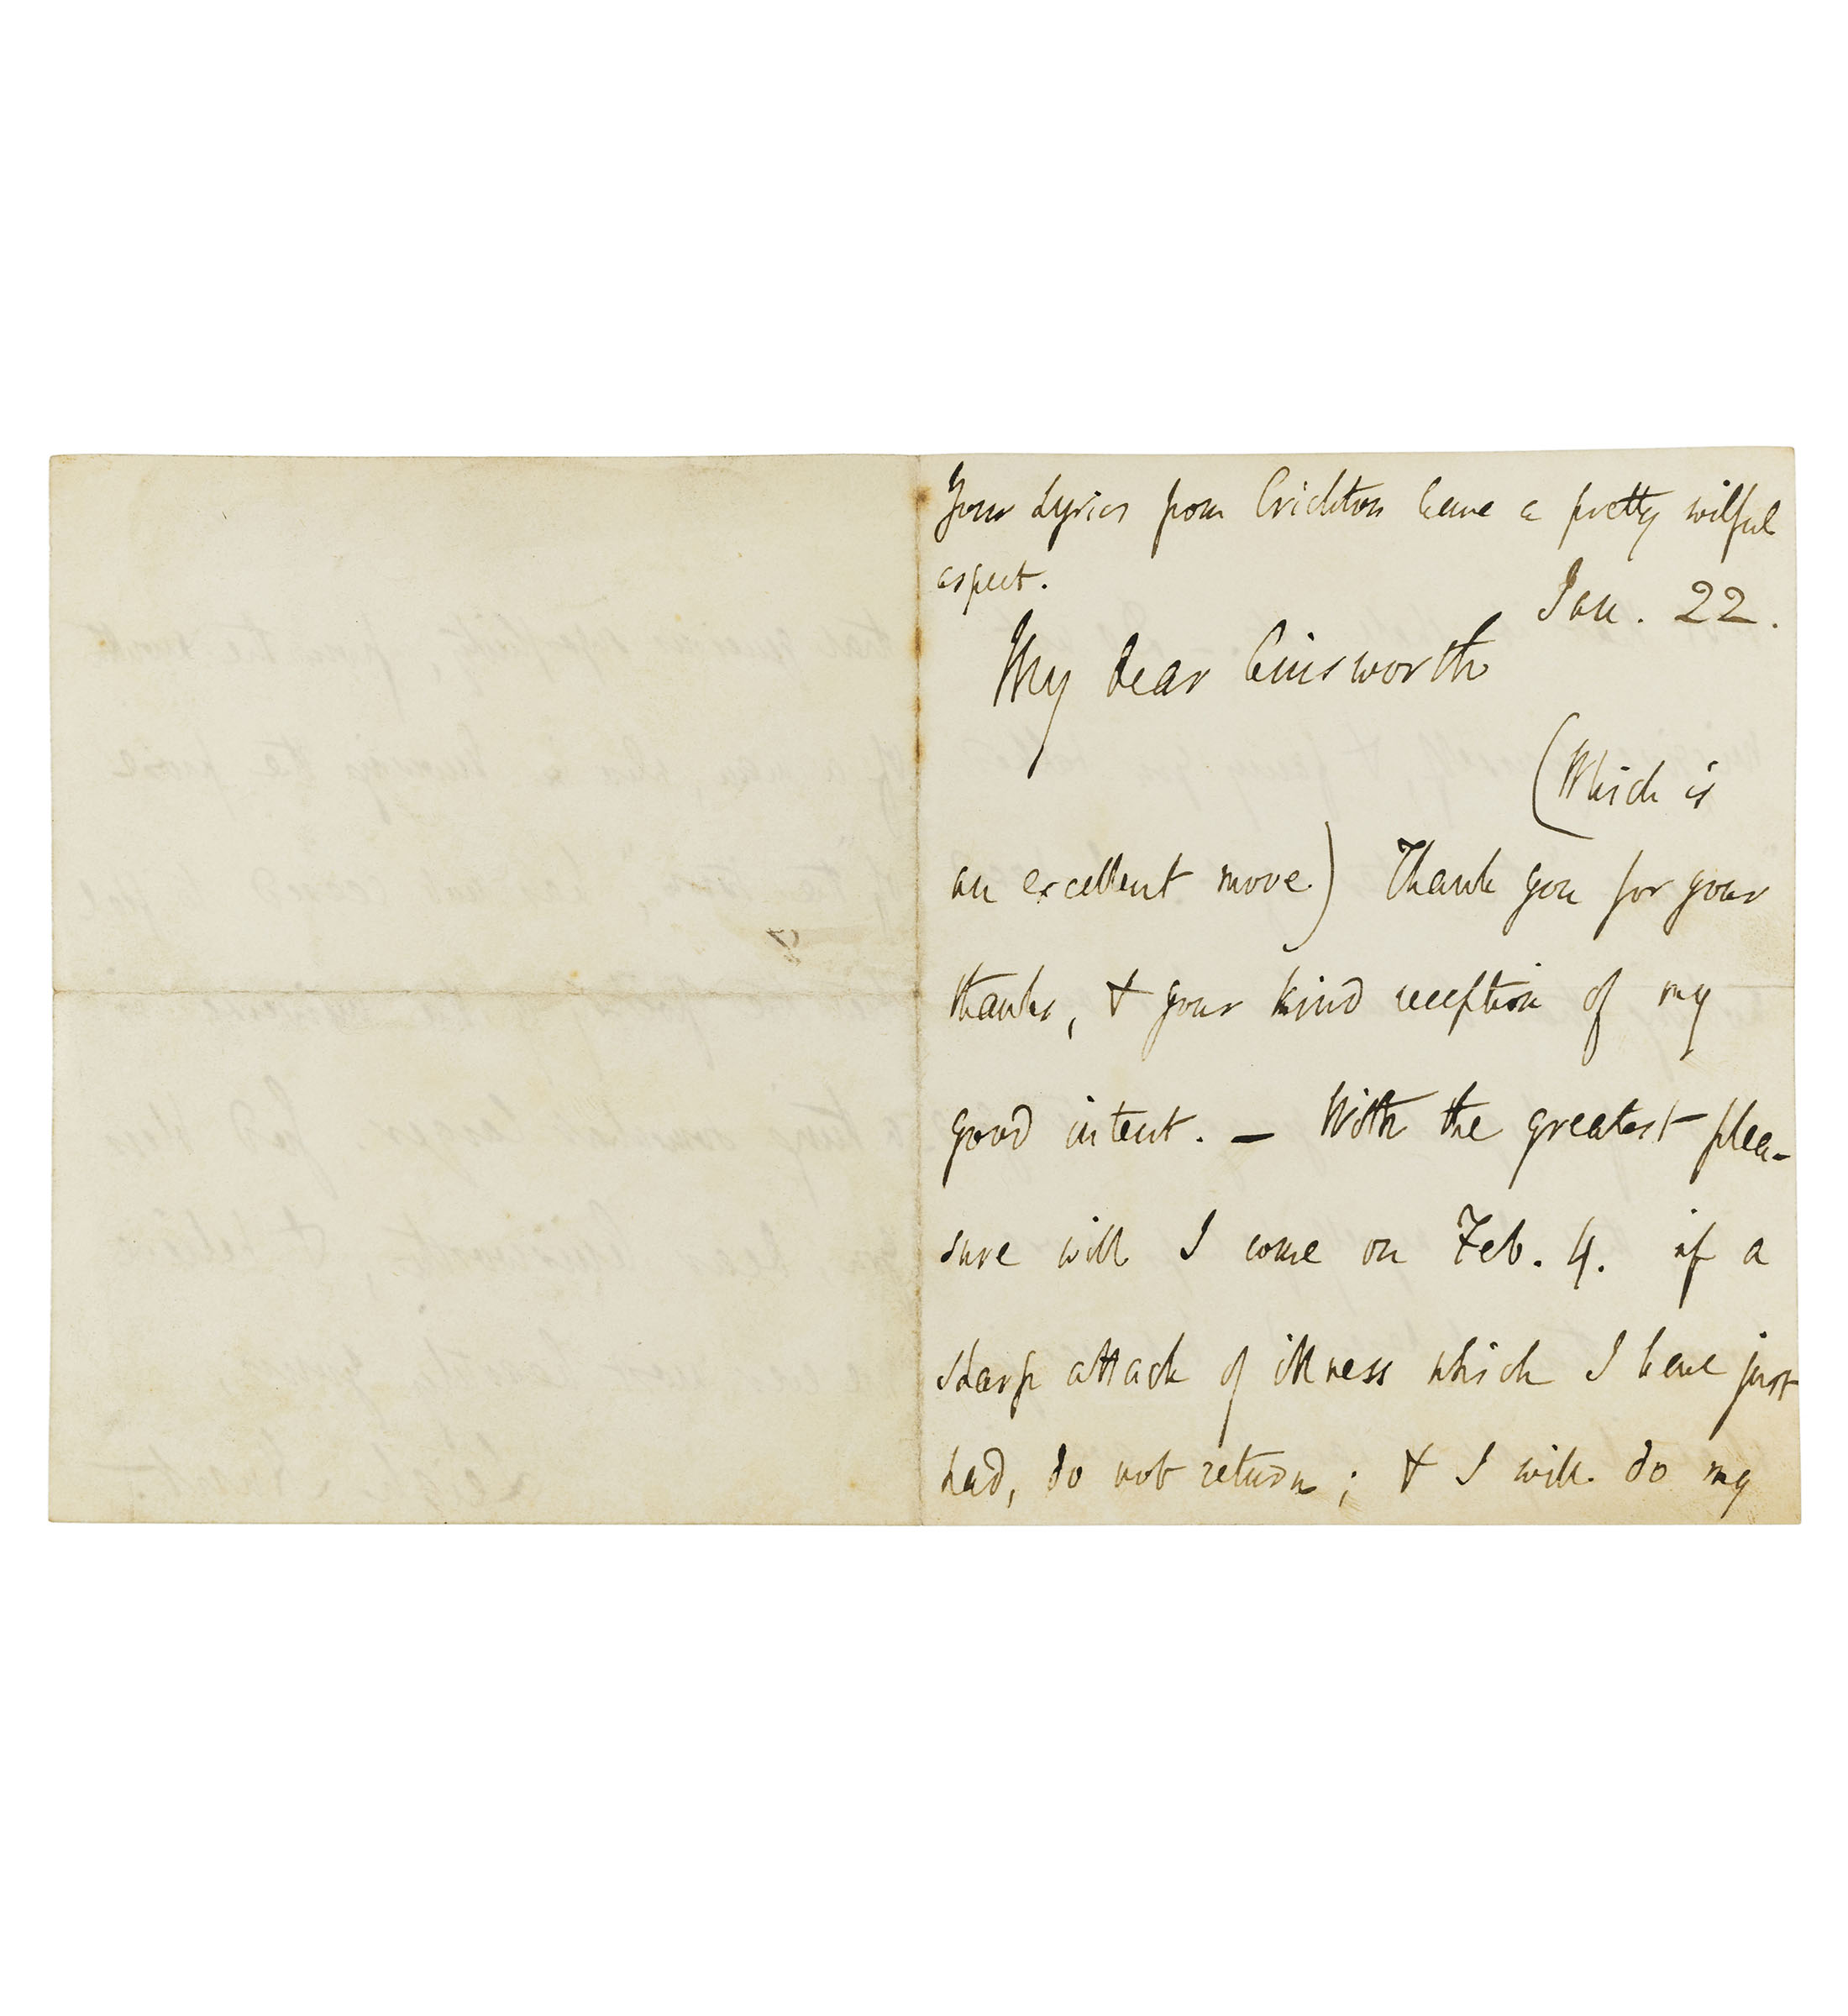 Your Lyrics from Crichton have a pretty wilful
aspect.
Jan. 22.
My dear Ainsworth
(Which is
an excellent move.) Thank you for your
thanks, & your kind reception of my
good intent. — With the greatest plea-
sure will I come on Feb. 4. if a
sharp attack of illness which I have just
had, do not return; & I will do my